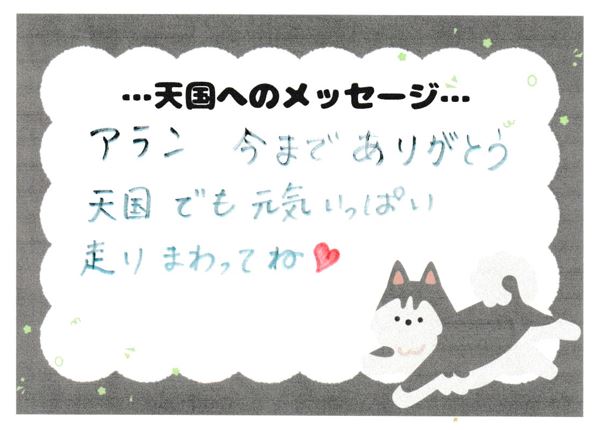 …天国へのメッセージ…
アラン 今まで ありがとう
天国 でも 元気いっぱい
走り まわってね♥